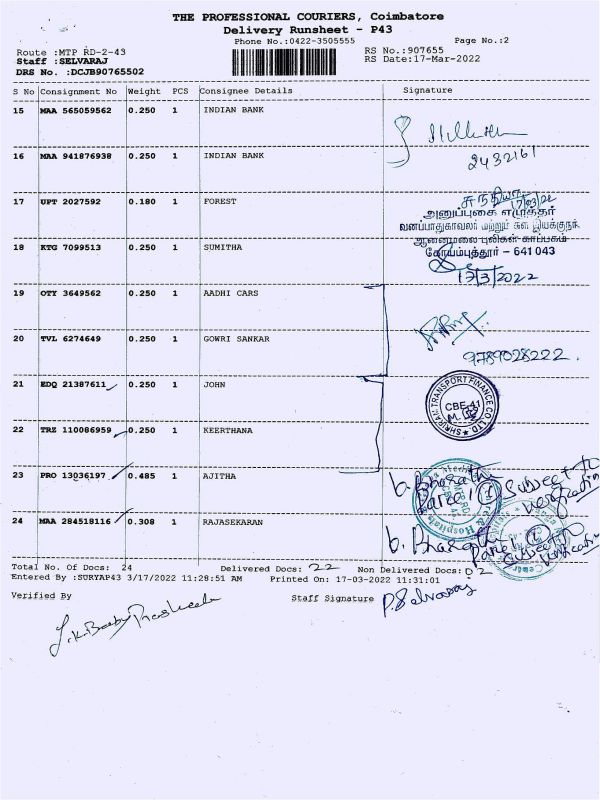 THE PROFESSIONAL COURIERS, Coimbatore
Delivery Runsheet - P43
Phone No.:0422-3505555 Page No.:2
Route :MTP RD-2-43 RS No.:907655
Staff :SELVARAJ RS Date:17-Mar-2022
DRS No. :DCJB90765502
S No Consignment No Weight PCS Consignee Details Signature
15 MAA 565059562 0.250 1 INDIAN BANK
16 MAA 941876938 0.250 1 INDIAN BANK
2432161
17 UPT 2027592 0.180 1 FOREST
17/03/22
அனுப்புகை எழுத்தர்
வனப்பாதுகாவலர் மற்றும் கள இயக்குநர்
ஆனைமலை புலிகள் காப்பகம்
கோயம்புத்தூர் - 641 043
18 KTG 7099513 0.250 1 SUMITHA
17/3/2022
19 OTY 3649562 0.250 1 AADHI CARS
20 TVL 6274649 0.250 1 GOWRI SANKAR
9789028222.
21 EDQ 21387611 0.250 1 JOHN
SHRIRAM TRANSPORT FINANCE CO LTD
CBE-41
22 TRZ 110086959 0.250 1 KEERTHANA
23 PRO 13036197 0.485 1 AJITHA
b. Bharath
Parcel 1 Subject to
verification
24 MAA 284518116 0.308 1 RAJASEKARAN
b. Bharath
Parcel 1
Subject to
verification
Total No. Of Docs: 24 Delivered Docs: 22 Non Delivered Docs: 02
Entered By :SURYAP43 3/17/2022 11:28:51 AM Printed On: 17-03-2022 11:31:01
Verified By Staff Signature P. Selvaraj